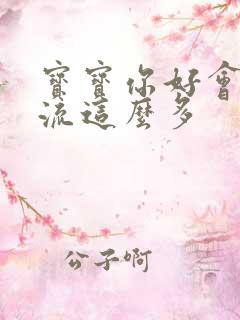 寶寶你好會
流這麼多
公子啊